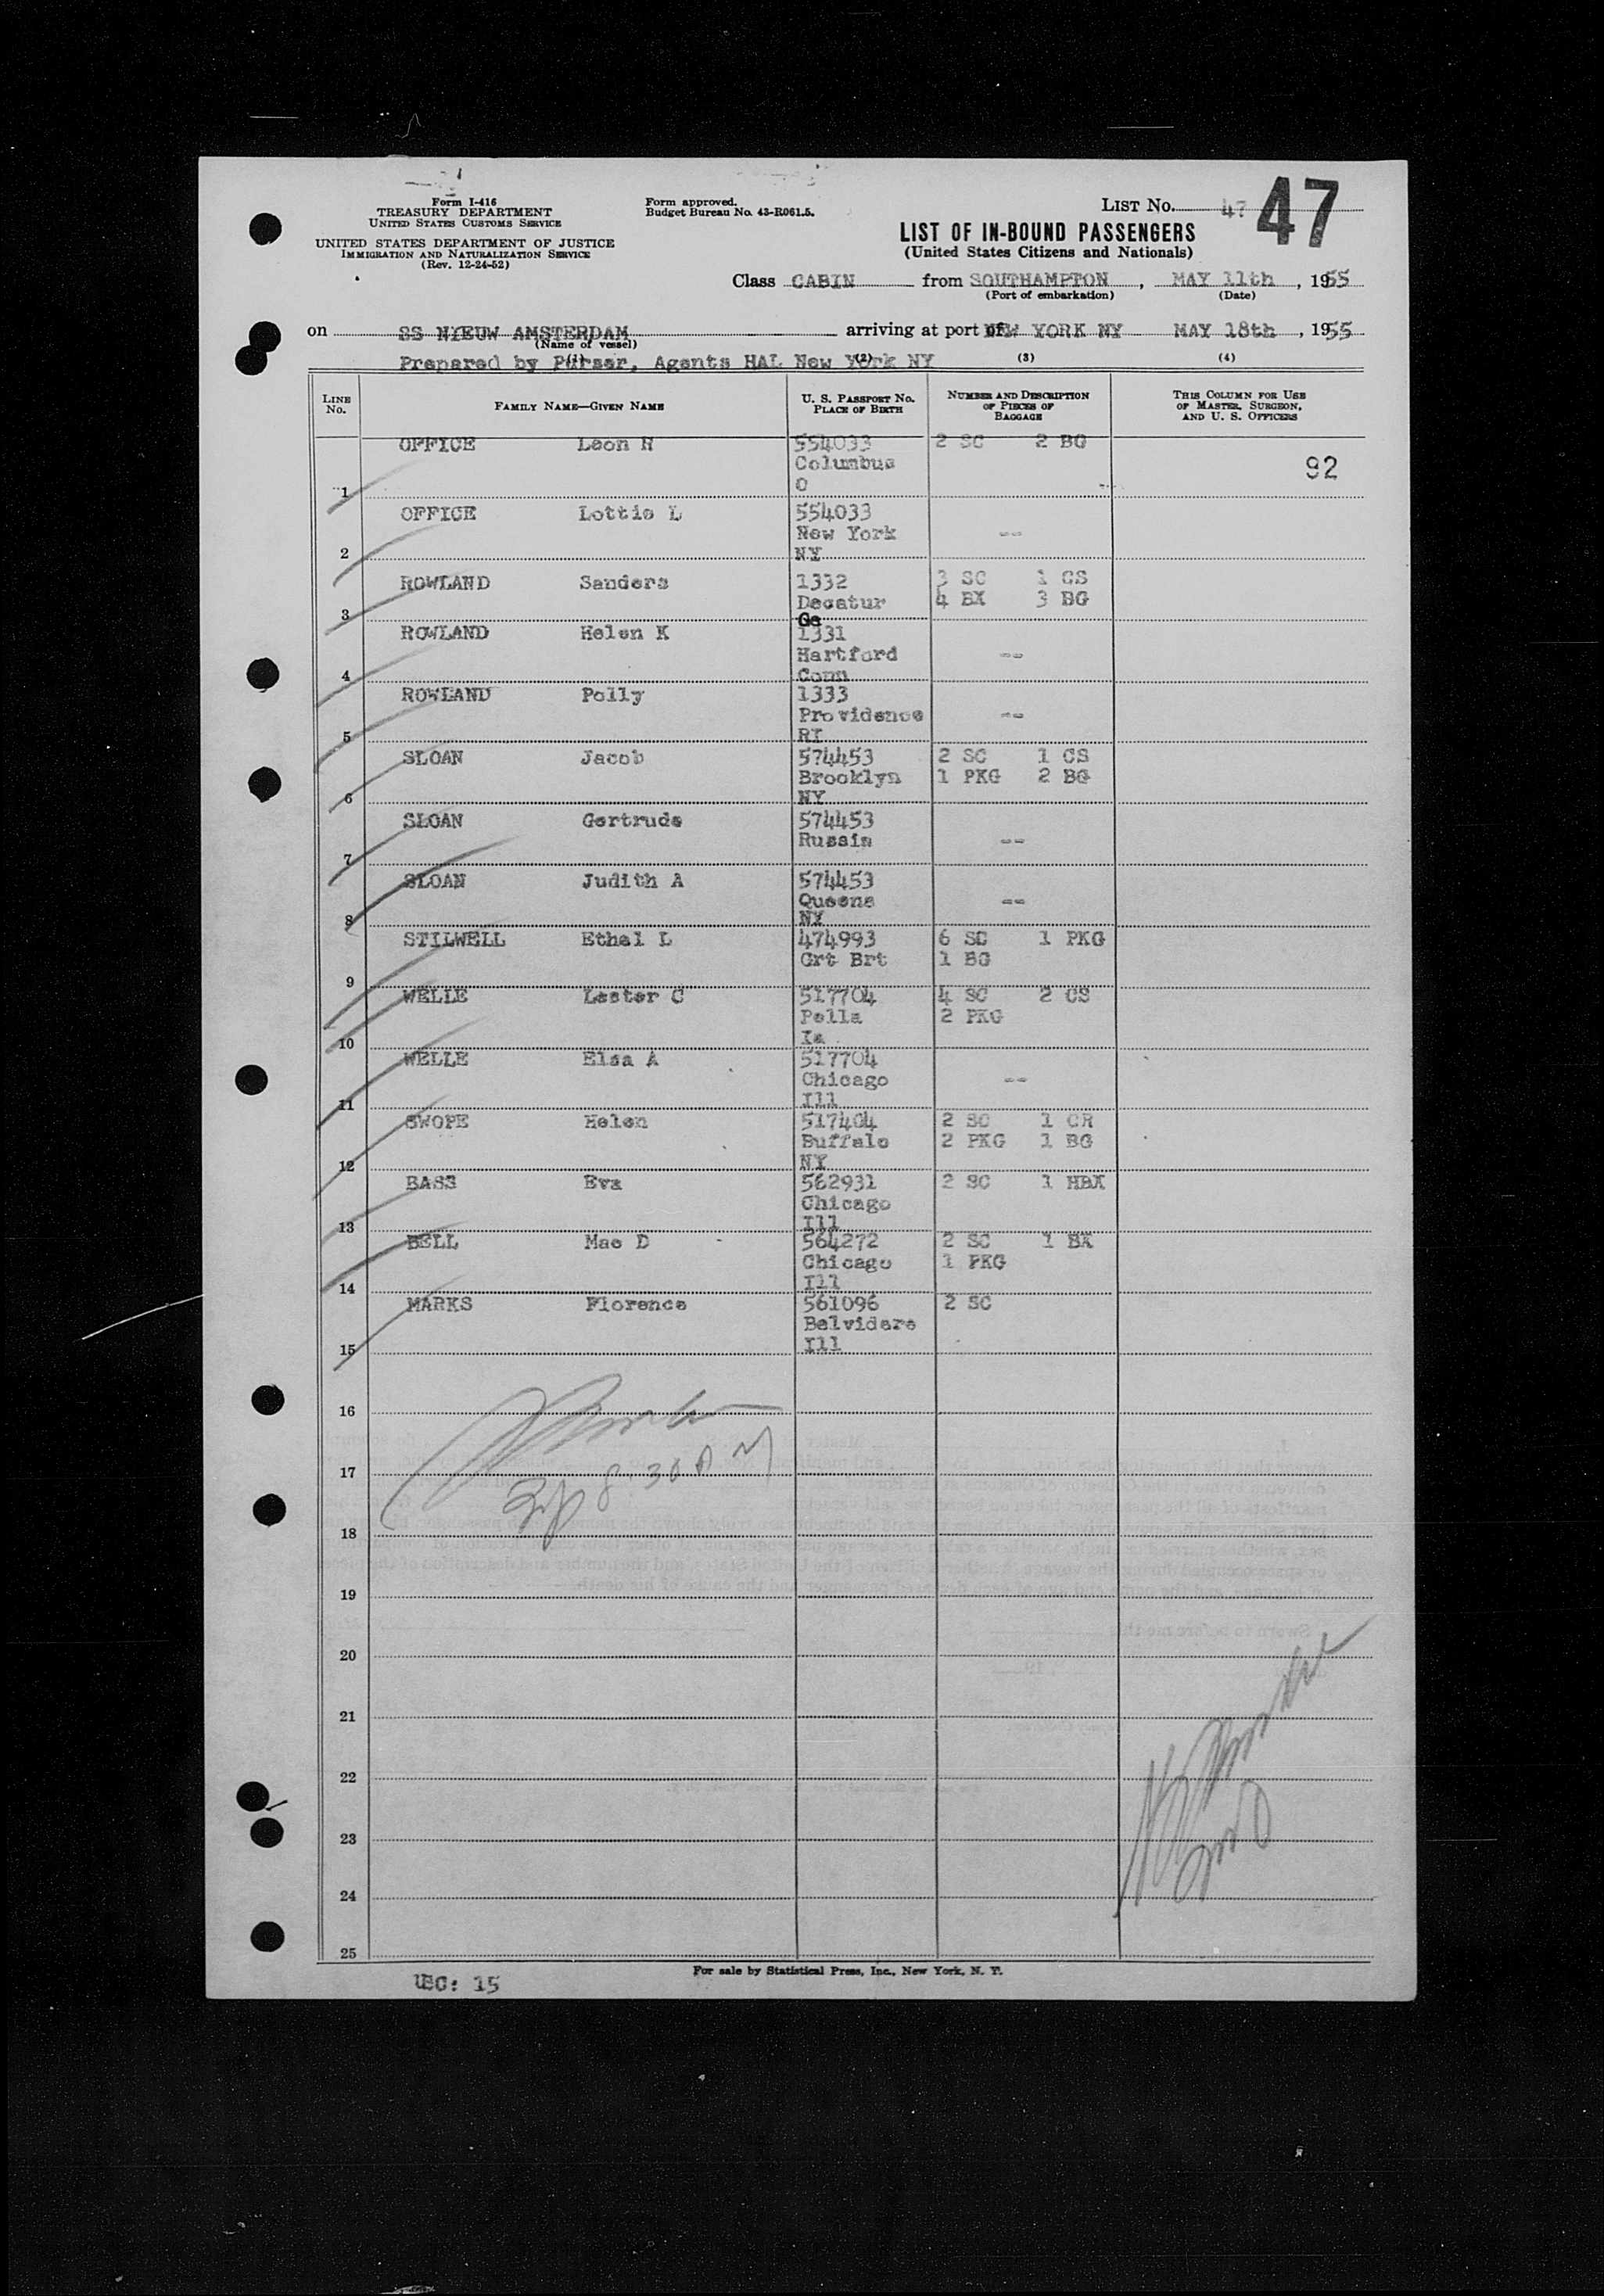 Form I-416
TREASURY DEPARTMENT
UNITED STATES CUSTOMS SERVICE
UNITED STATES DEPARTMENT OF JUSTICE
IMMIGRATION AND NATURALIZATION SERVICE
(Rev. 12-24-52)
Form approved.
Budget Bureau No. 43-R061.5.
LIST No. 47 47
LIST OF IN-BOUND PASSENGERS
(United States Citizens and Nationals)
Class CABIN from SOUTHAMPTON, MAY 11th, 1955
(Port of embarkation) (Date)
on SS NIEUW AMSTERDAM arriving at port of NEW YORK NY MAY 18th, 1955
(Name of vessel)
Prepared by Purser, Agents HAL New York NY
(1) (2) (3) (4)
LINE No. FAMILY NAME—GIVEN NAME U. S. PASSPORT No. PLACE OF BIRTH NUMBER AND DESCRIPTION OF PIECES OF BAGGAGE THIS COLUMN FOR USE OF MASTER, SURGEON, AND U. S. OFFICERS
OFFICE Leon H 554033 2 SC 2 BG
Columbus 92
1 O
OFFICE Lottie L 554033
New York --
2 NY
ROWLAND Sanders 1332 3 SC 1 CS
Decatur 4 BX 3 BG
3 Ga
ROWLAND Helen K 1331
Hartford --
4 Conn
ROWLAND Polly 1333
Providence --
5 RI
SLOAN Jacob 574453 2 SC 1 CS
Brooklyn 1 PKG 2 BG
6 NY
SLOAN Gertrude 574453
Russia --
7
SLOAN Judith A 574453
Queens --
8 NY
STILWELL Ethel L 474993 6 SC 1 PKG
Grt Brt 1 BG
9
WELLE Lester C 517704 4 SC 2 CS
Pella 2 PKG
10 Ia
WELLE Elsa A 517704
Chicago --
11 Ill
SWOPE Helen 517404 2 SC 1 CR
Buffalo 2 PKG 1 BG
12 NY
BASS Eva 562931 2 SC 1 HBX
Chicago
13 Ill
BELL Mae D 564272 2 SC 1 BX
Chicago 1 PKG
14 Ill
MARKS Florence 561096 2 SC
Belvidere
15 Ill
16
17 8:30 AM
18
19
20
21
22
23
24
25
For sale by Statistical Press, Inc., New York, N. Y.
USC: 15